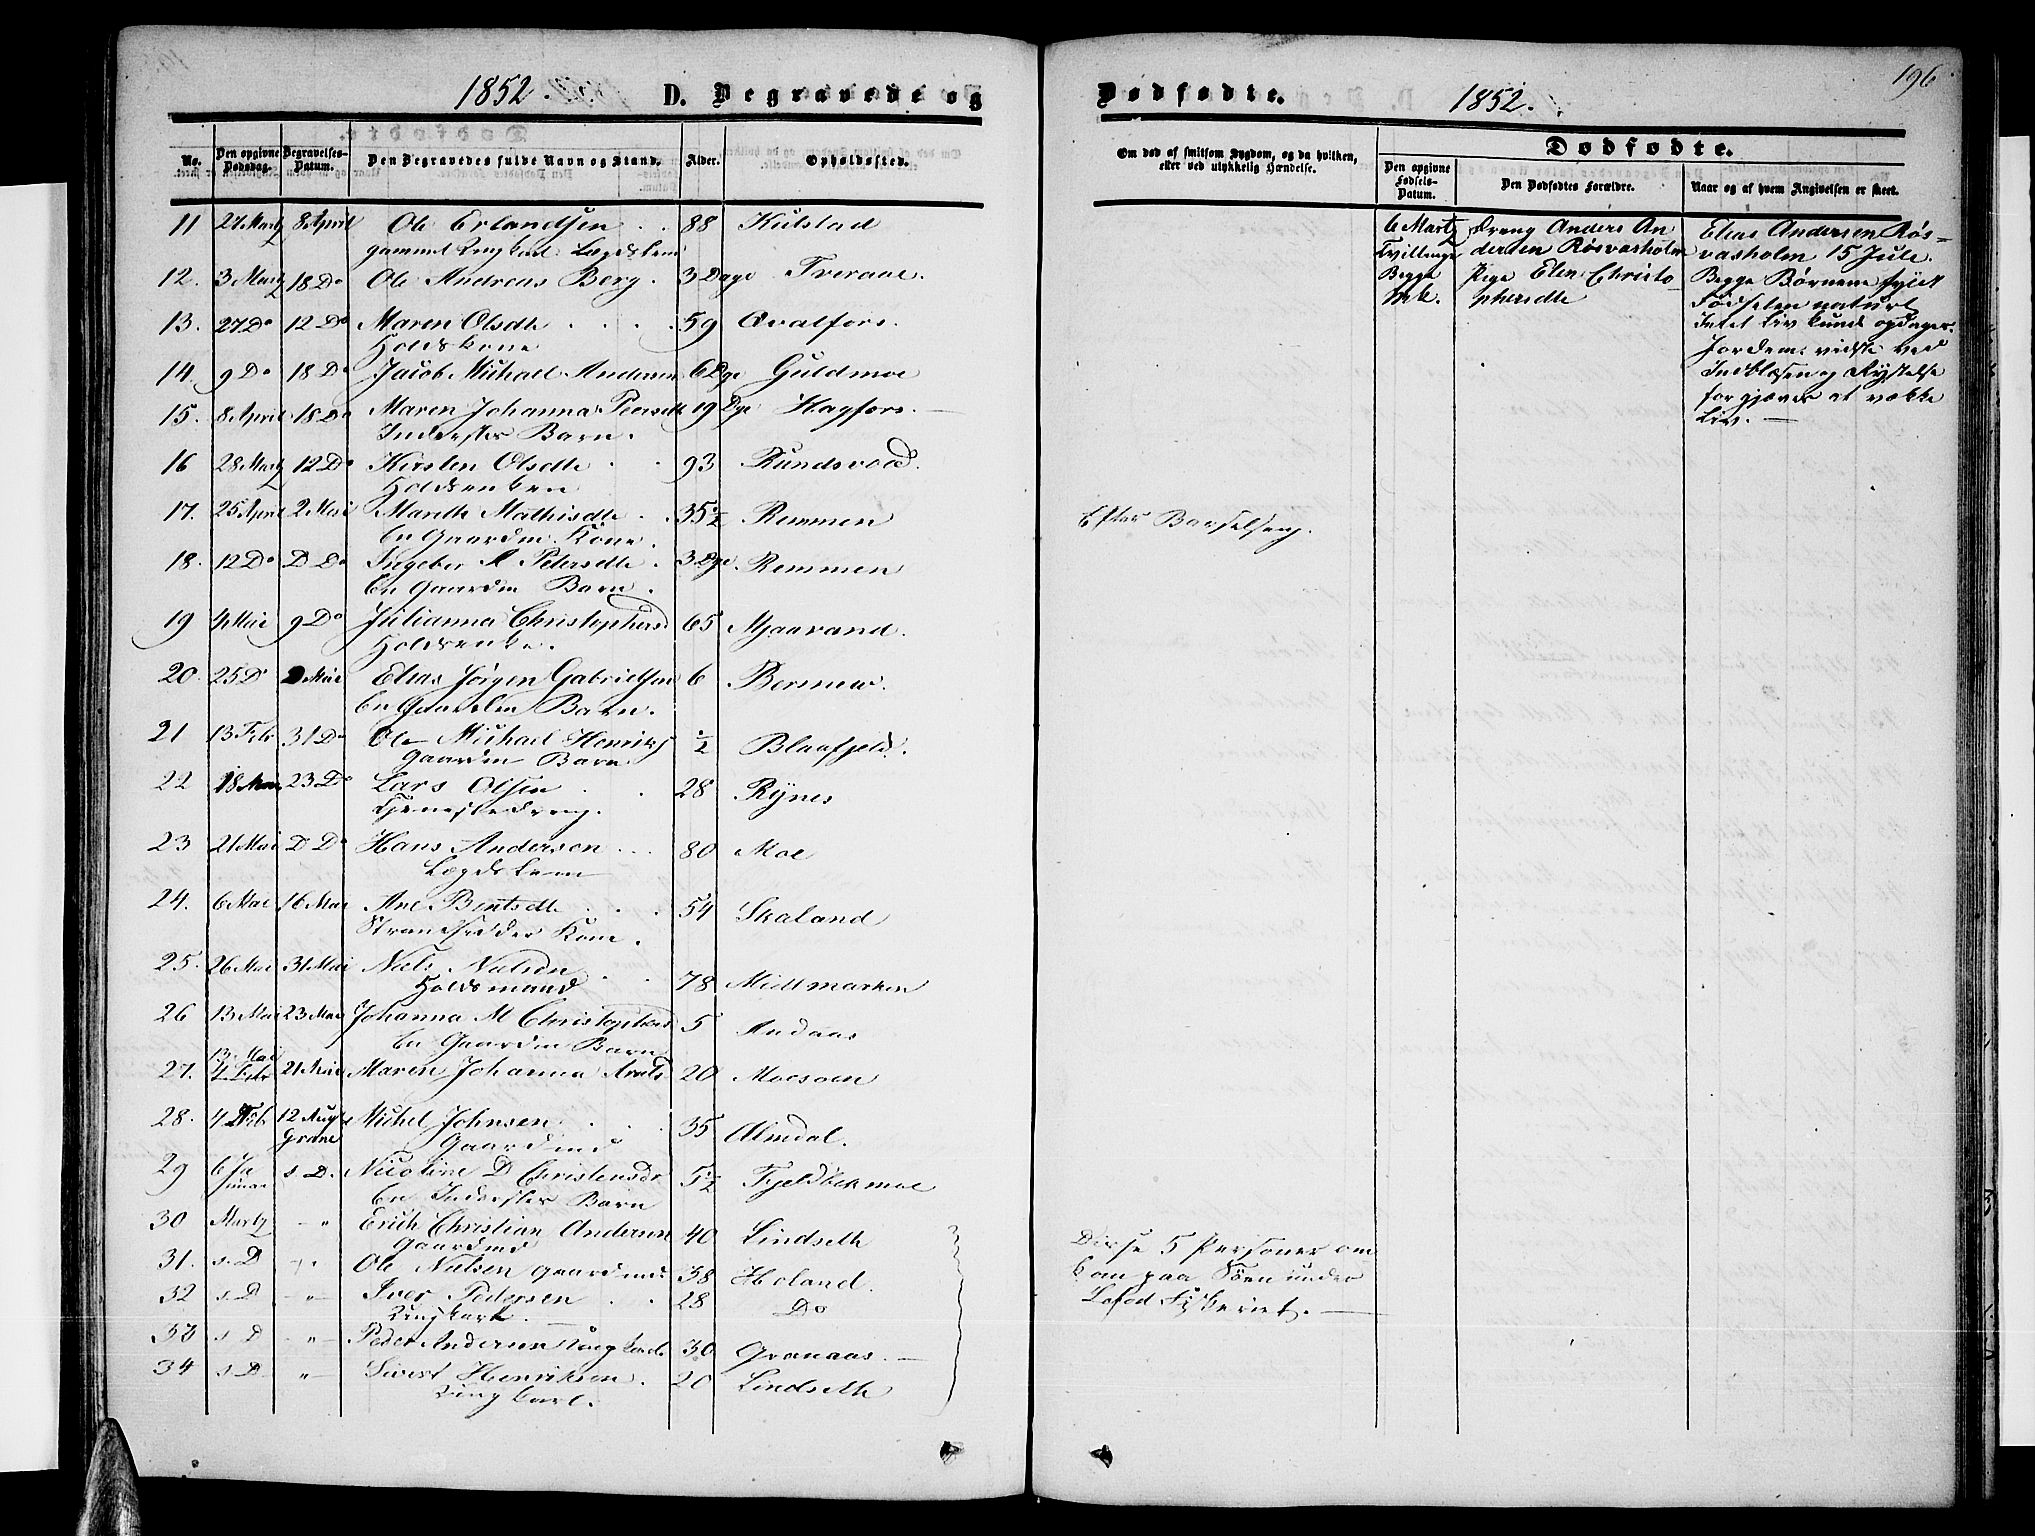 1852.
D. Begravede og
No.
Den opgivne Dødsdag.
Begravelses-Datum.
Den Begravedes fulde Navn og Stand.
Alder.
Opholdssted.
11 27 Martz 8 April Ole Erlandsen 88 Kulstad
gammel Ungkarl Lægdslem
12. 3 Martz 18 Do Ole Andreas Berg. 3 Dage Tveraae.
13. 27 Do 12 Do Maren Olsdtr 59 Qvalfors.
Holdskone
14. 9 Do 18 Do Jacob Michael Andersen 6 Dge Guldmoe
15. 8 April 18 Do Maren Johanna Peersdtr 19 Dge Hagfors.
Inderster Barn.
16 28 Martz 12 Do Kirsten Olsdtr 93 Rundsvold.
Holdsenken
17. 25 April 2 Mai Marith Mathisdtr 35½ Remmen
En Gaardm. Kone.
18. 12 Do D Do Ingeber A Petersdtr. 3 Dge. Remmen
En Gaardm Barn.
19 4 Mai 9 Do Julianna Christophersd 65 Mjaavand.
Holdsenke.
20. 25 D Mai Elias Jørgen Gabrielsen 6
En Gaardm Barn.
21 13 Febr 31 Do Ole Michael Henriks ½ Blaafjeld.
Gaardm Barn
22 18 Mai 23 Do Lars Olsen 28 Rynes
Tjenestedreng.
23 21 Mai D Do Hans Andersen 80 Moe
Lægdslem
24. 6 Mai 16 Mai Ane Bentsdtr 54 Skaland
Strandsidder Kone.
25. 26 Mai 31 Mai Niels Nielsen 78 Midtmarken
Holdsmand
26 13 Mai 23 Mai Johanna M Christophersd 5 Andaas
En Gaardm Barn
13. Mai
27. 4 Febr 21 Mai Maren Johanna 20 Moesoen
28. 4 Febr. 12 Aug Michel Johnsen 35 Almdal.
Grane Gaardmd
29 6 Ja s D. Nicoline D Christensdr 5½ Fjeldbekmoe
nuar En Inderster Barn
30 Martz - " Erich Christian Andersen 40 Lindseth
Gaardmd
31. s. D - " Ole Nielsen Gaardmd 38 Holand
32 s D - " Iver Pedersen 28 Do
Ungkarl.
33 s D - " Peder Andersen Ungkarl 30 Granaas.
34 s D - " Sivert Henriksen. 20 Lindseth
Ungkarl.
Dødfødte.
1852.
196
Om død af smitsom Sygdom, og da hvilken,
eller ved ulykkelig Hændelse.
Dødfødte.
Den opgivne Fødsels-Datum.
Den Dødfødtes Forældre.
Naar og af hvem Angivelsen er skeet.
6 Martz Dreng Anders An Elias Andersen Røs-
Tvillinge dersen Røsvasholm vasholm 15 Jule.
Begge Pige Elen Christo Begge Børnene fyldt
phersdtr Fødselen naturl
Intet Liv kunde opdages.
Jordem: vidste ved
Indblæsen og Rystelse
forgjæves at vække
Liv.
Efter Barselseng.
Disse 5 Personer om
kom paa Søen under
Lofod Fiskeriet.